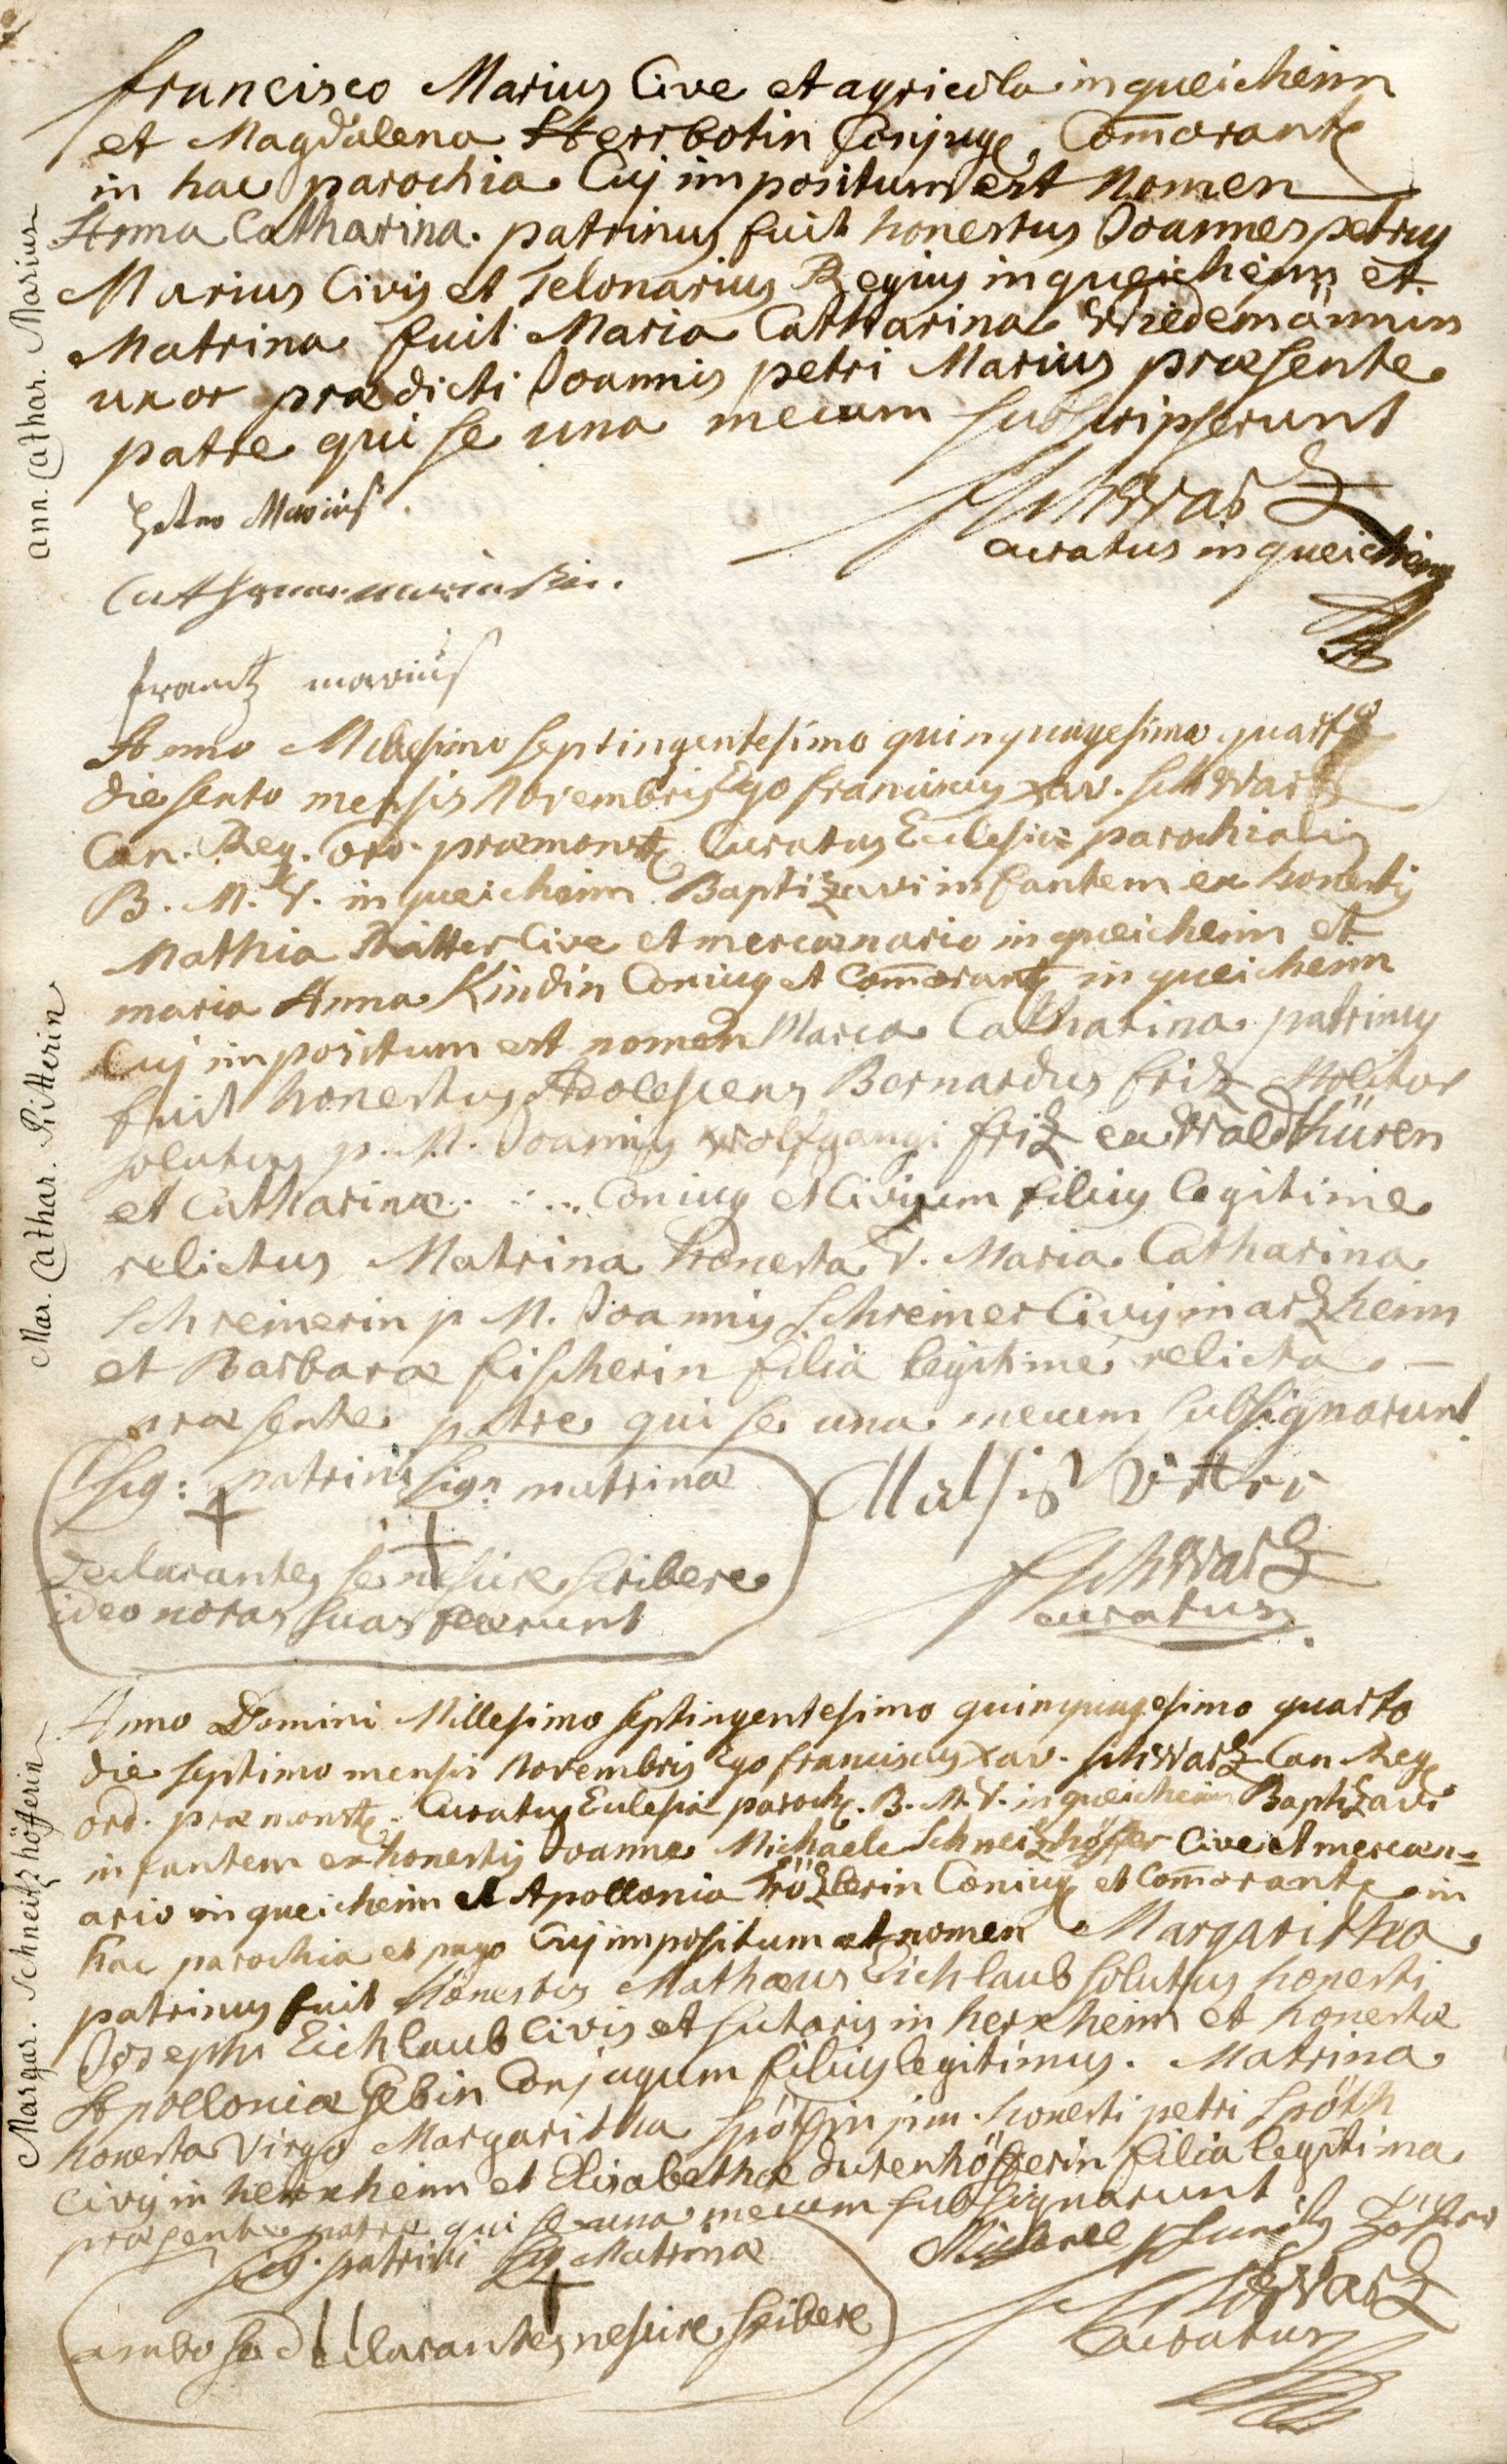 francisco Marius Cive et agricola in queicheim
et Magdalena Herrbotin Conjuge, Com̄orante
in hac parochia Cuj impositum est Nomen
Anna Catharina. patrinus fuit honestus Joannes petrus
Marius Civis et Telonarius Regius in queicheim et
Matrina fuit Maria Catharina Wiedemännin
uxor prædicti Joannis petri Marius præsente
patre qui se una mecum subscripserunt
ann. Cathar. Marius
Petter Marius.
Schwartz
curatus in queicheim
frantz marius
Anno Millesimo septingentesimo quinquagesimo quarto
die sexto mensis Novembris Ego franciscus xav. Schwartz
Can. Reg. Ord. præmonst. Curatus Ecclesiæ parochialis
B. M. V. in queicheim Baptizavi infantem ex honestis
Mathia Ritter Cive et mercænario in queicheim et
maria Anna Kindin Coniug et Com̄orant in queicheim
Cuj impositum est nomen Maria Catharina patrinus
fuit honestus Adolescens Bernardus fritz Molitor
solutus p. M. Joannis wolfgangi fritz ex Waldthüren
et Catharinæ . . . . Coniug et Civium filius legitime
relictus Matrina honesta V. Maria Catharina
Schreinerin p M. Joannis Schreiner Civis in artzheim
et Barbaræ fischerin filia legitime relicta –
præsente patre qui se una mecum subsignarunt
Mar. Cathar. Ritterin
Sig: patrini Sig: matrinæ
declarantes se nescire scribere
ideo notas suas fecerunt
Mathis Ritter
Schwartz
curatus
Anno Domini Millesimo septingentesimo quinquagesimo quarto
die septimo mensis Novembris Ego franciscus xav. Schwartz Can Reg
ord. præmonst. Curatus Eclesiæ paroch. B. M. V. in queicheim Baptizavi
infantem ex honestis Joanne Michaele Schneitzhöffer Cive et mercæn=
ario in queicheim et Apollonia Coniug et Com̄orante in
hac parochia et pago Cuj impositum est nomen Margaritha
patrinus fuit Honestus Mathæus Eichlaub solutus honesti
Josephi Eichlaub Civis et sutoris in herxheim et honestæ
Apolloniæ Conjugum filius legitimus. Matrina
honesta Virgo Margaritha Spöthin honesti petri Spöth
Civis in herxheim et Elisabethæ dutenhöfferin filia legitima
præsente patre qui se una mecum subsignarunt
Margar. Schneitzhöfferin
Sig. patrini Sig Matrinæ
ambo se declarantes nescire scribere
Schwartz
Curatus